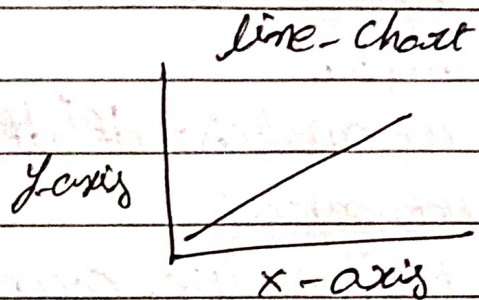 line-Chart
y-axis
x-axis